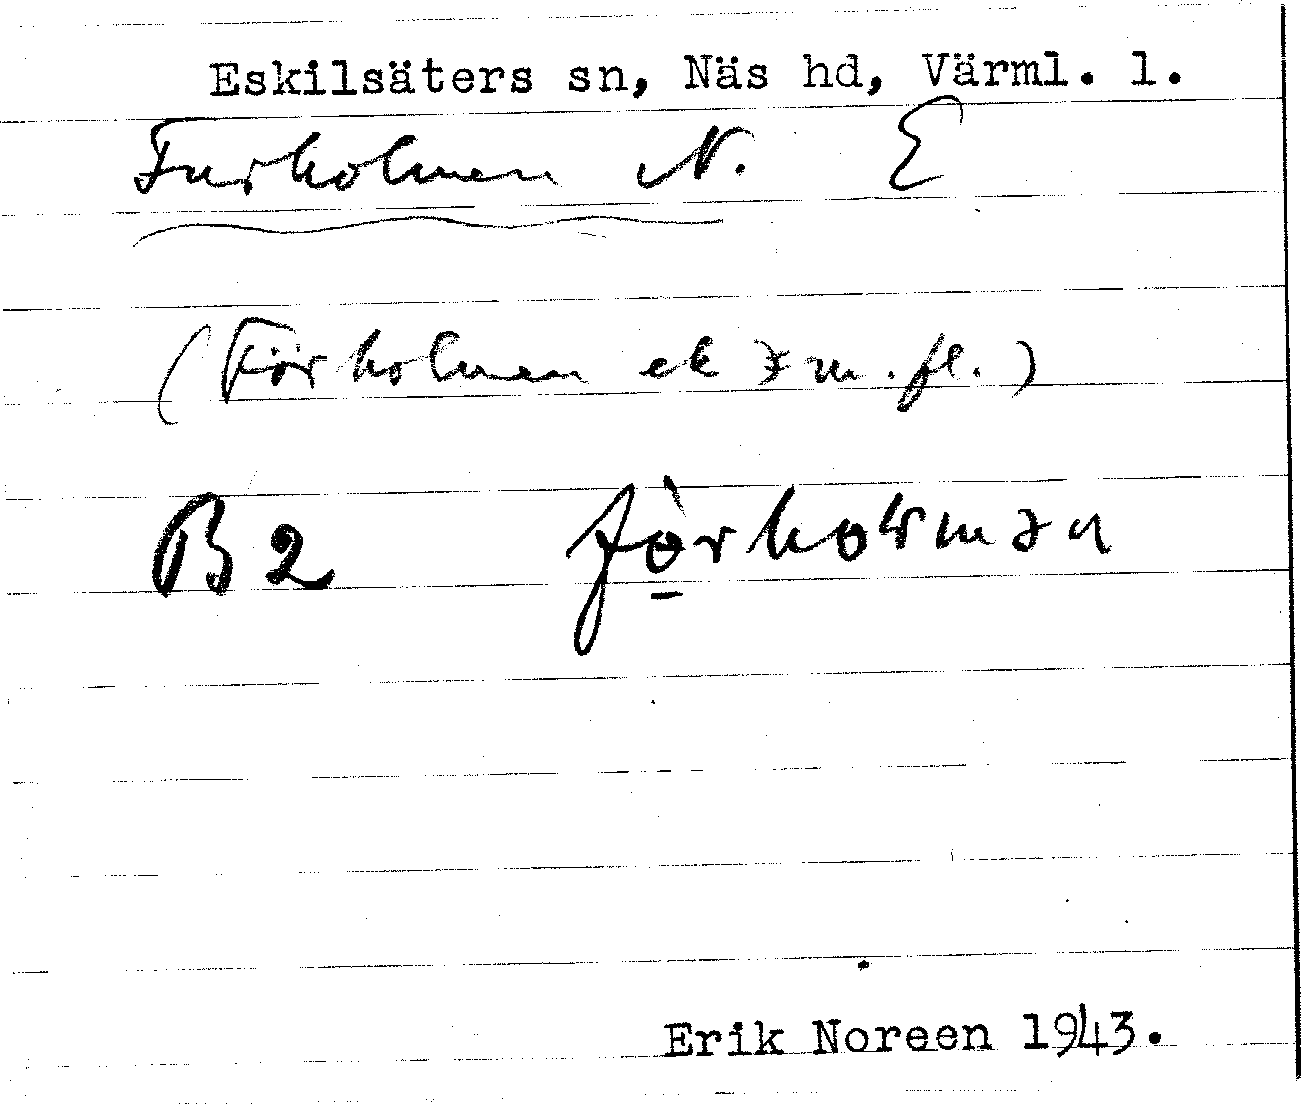 Eskilsäters sn, Näs hd, Värml. l.
Furholmen N. E
(Förholmen ek m.fl.)
B2 förholmən
Erik Noreen 1943.